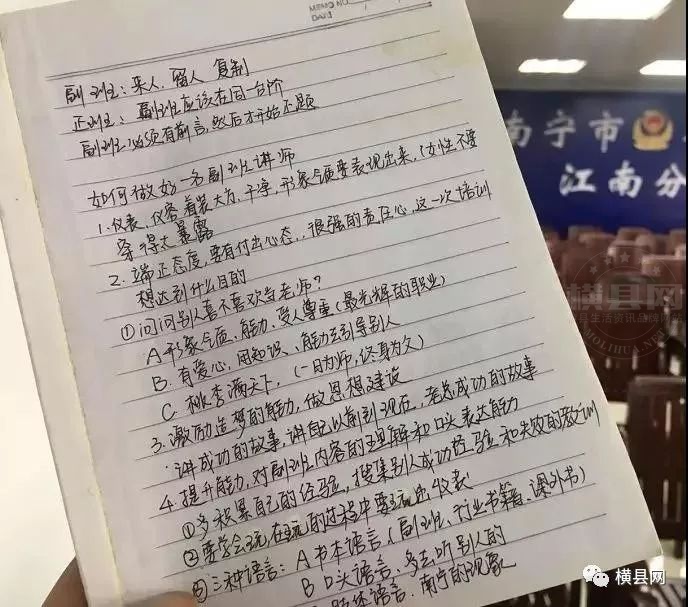 MEMO NO.
DATE
副班：来人、留人、复制
正班：副班应该在同一台阶
副班必须有前言，然后才开始不题
如何做好一名副班讲师
1.仪表、仪容，着装大方、干净，形象气质要表现出来，（女性不要
穿得太暴露
2.端正态度，要有付出心态，很强的责任心，这一次培训
想达到什么目的
①问问别人喜不喜欢当老师？
A形象气质、能力、受人尊重（最光辉的职业）
B.有爱心，用知识、能力去引导别人
C桃李满天下，（一日为师，终身为父）
3.激励造梦的能力，做思想建设
讲成功的故事，讲自己以前到现在，老总成功的故事
4.提升能力，对副班内容的理解和口头表达能力
①多积累自己的经验，搜集别人成功经验和失败的教训
②要学会玩，在玩的过程中要玩出仪表
③三种语言：A书本语言（副班、行业书籍、课外书）
B口头语言，多去听别人的
肢体语言，南宁的现象
南宁市
江南分
横县网
生活资讯品牌网站
MOLIHUA.NET
横县网